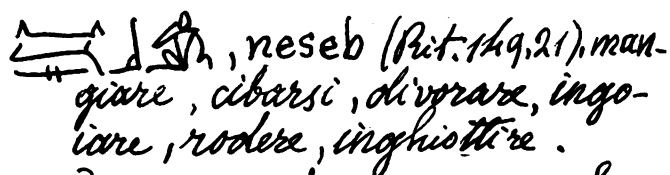 , neseb (Rit. 149, 21), man-
giare, cibarsi, divorare, ingo-
iare, rodere, inghiottire.